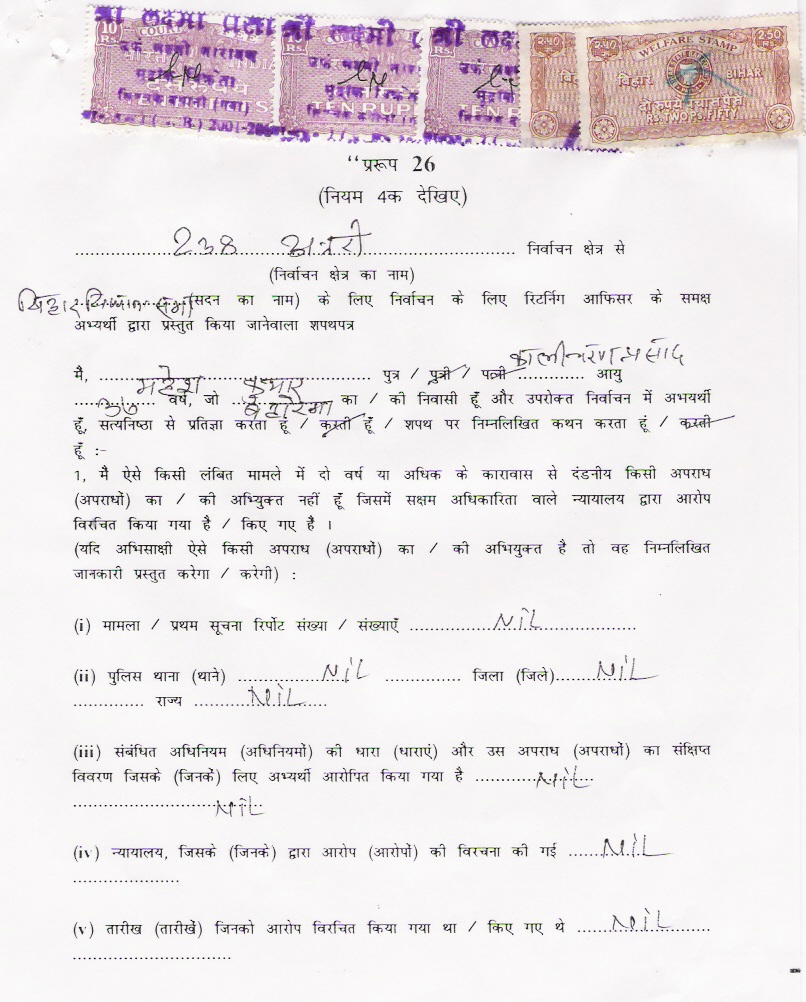 10 Rs.
COURT
TEN RUP
TEN
WELFARE STAMP
2.50 RS.
बिहार BIHAR
दो रुपये पचास पैसे
RS. TWO PS. FIFTY
"प्ररूप 26
(नियम 4क देखिए)
238 अतरी निर्वाचन क्षेत्र से
(निर्वाचन क्षेत्र का नाम)
बिहार विधान सभा (सदन का नाम) के लिए निर्वाचन के लिए रिटर्निग आफिसर के समक्ष
अभ्यर्थी द्वारा प्रस्तुत किया जानेवाला शपथपत्र
कालीचरण प्रसाद
मै, महेश कुमार पुत्र / पुत्री / पत्नी ............ आयु
37 वर्ष, जो का / की निवासी हूँ और उपरोक्त निर्वाचन में अभयर्थी
हूँ, सत्यनिष्ठा से प्रतिज्ञा करता हूँ / करती हूँ / शपथ पर निम्नलिखित कथन करता हूं / करती
हूँ :-
1, मै ऐसे किसी लंबित मामले में दो वर्ष या अधिक के कारावास से दंडनीय किसी अपराध
(अपराधों) का / की अभियुक्त नहीं हूँ जिसमें सक्षम अधिकारिता वाले न्यायालय द्वारा आरोप
विरचित किया गया है / किए गए हैं ।
(यदि अभिसाक्षी ऐसे किसी अपराध (अपराधों) का / की अभियुक्त है तो वह निम्नलिखित
जानकारी प्रस्तुत करेगा / करेगी) :
(i) मामला / प्रथम सूचना रिर्पोट संख्या / संख्याएँ ............Nil............
(ii) पुलिस थाना (थाने) ............Nil............ जिला (जिले)......Nil
.............. राज्य ........Nil........
(iii) संबंधित अधिनियम (अधिनियमों) की धारा (धाराएं) और उस अपराध (अपराधों) का संक्षिप्त
विवरण जिसके (जिनके) लिए अभ्यर्थी आरोपित किया गया है ..........Nil......
..........................Nil
(iv) न्यायालय, जिसके (जिनके) द्वारा आरोप (आरोपों) की विरचना की गई ......Nil
....................
(v) तारीख (तारीखें) जिनको आरोप विरचित किया गया था / किए गए थे ......Nil..........
..............................